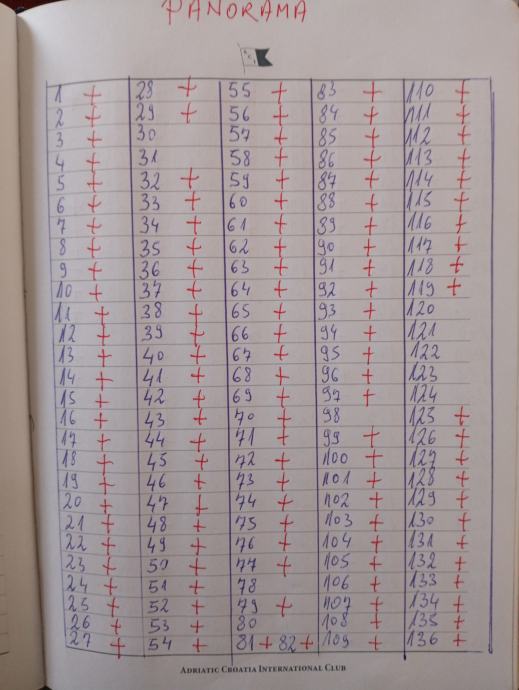 PANORAMA
1 +
2 +
3 +
4 +
5 +
6 +
7 +
8 +
9 +
10 +
11 +
12 +
13 +
14 +
15 +
16 +
17 +
18 +
19 +
20 +
21 +
22 +
23 +
24 +
25 +
26 +
27 +
28 +
29 +
30
31
32 +
33 +
34 +
35 +
36 +
37 +
38 +
39 +
40 +
41 +
42 +
43 +
44 +
45 +
46 +
47 +
48 +
49 +
50 +
51 +
52 +
53 +
54 +
55 +
56 +
57 +
58 +
59 +
60 +
61 +
62 +
63 +
64 +
65 +
66 +
67 +
68 +
69 +
70 +
71 +
72 +
73 +
74 +
75 +
76 +
77 +
78
79 +
80
81 + 82 +
83 +
84 +
85 +
86 +
87 +
88 +
89 +
90 +
91 +
92 +
93 +
94 +
95 +
96 +
97 +
98
99 +
100 +
101 +
102 +
103 +
104 +
105 +
106 +
107 +
108 +
109 +
110 +
111 +
112 +
113 +
114 +
115 +
116 +
117 +
118 +
119 +
120
121
122
123
124
125 +
126 +
127 +
128 +
129 +
130 +
131 +
132 +
133 +
134 +
135 +
136 +
ADRIATIC CROATIA INTERNATIONAL CLUB